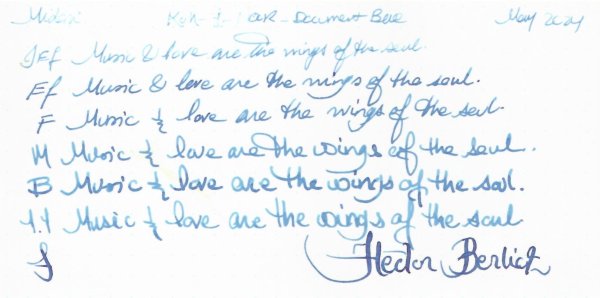 Midori May 2021
Eff Music & love are the wings of the soul.
Ff Music & love are the wings of the soul.
F Music & love are the wings of the soul.
M Music & love are the wings of the soul.
B Music & love are the wings of the soul.
1.1 Music & love are the wings of the soul
J Hector Berlioz